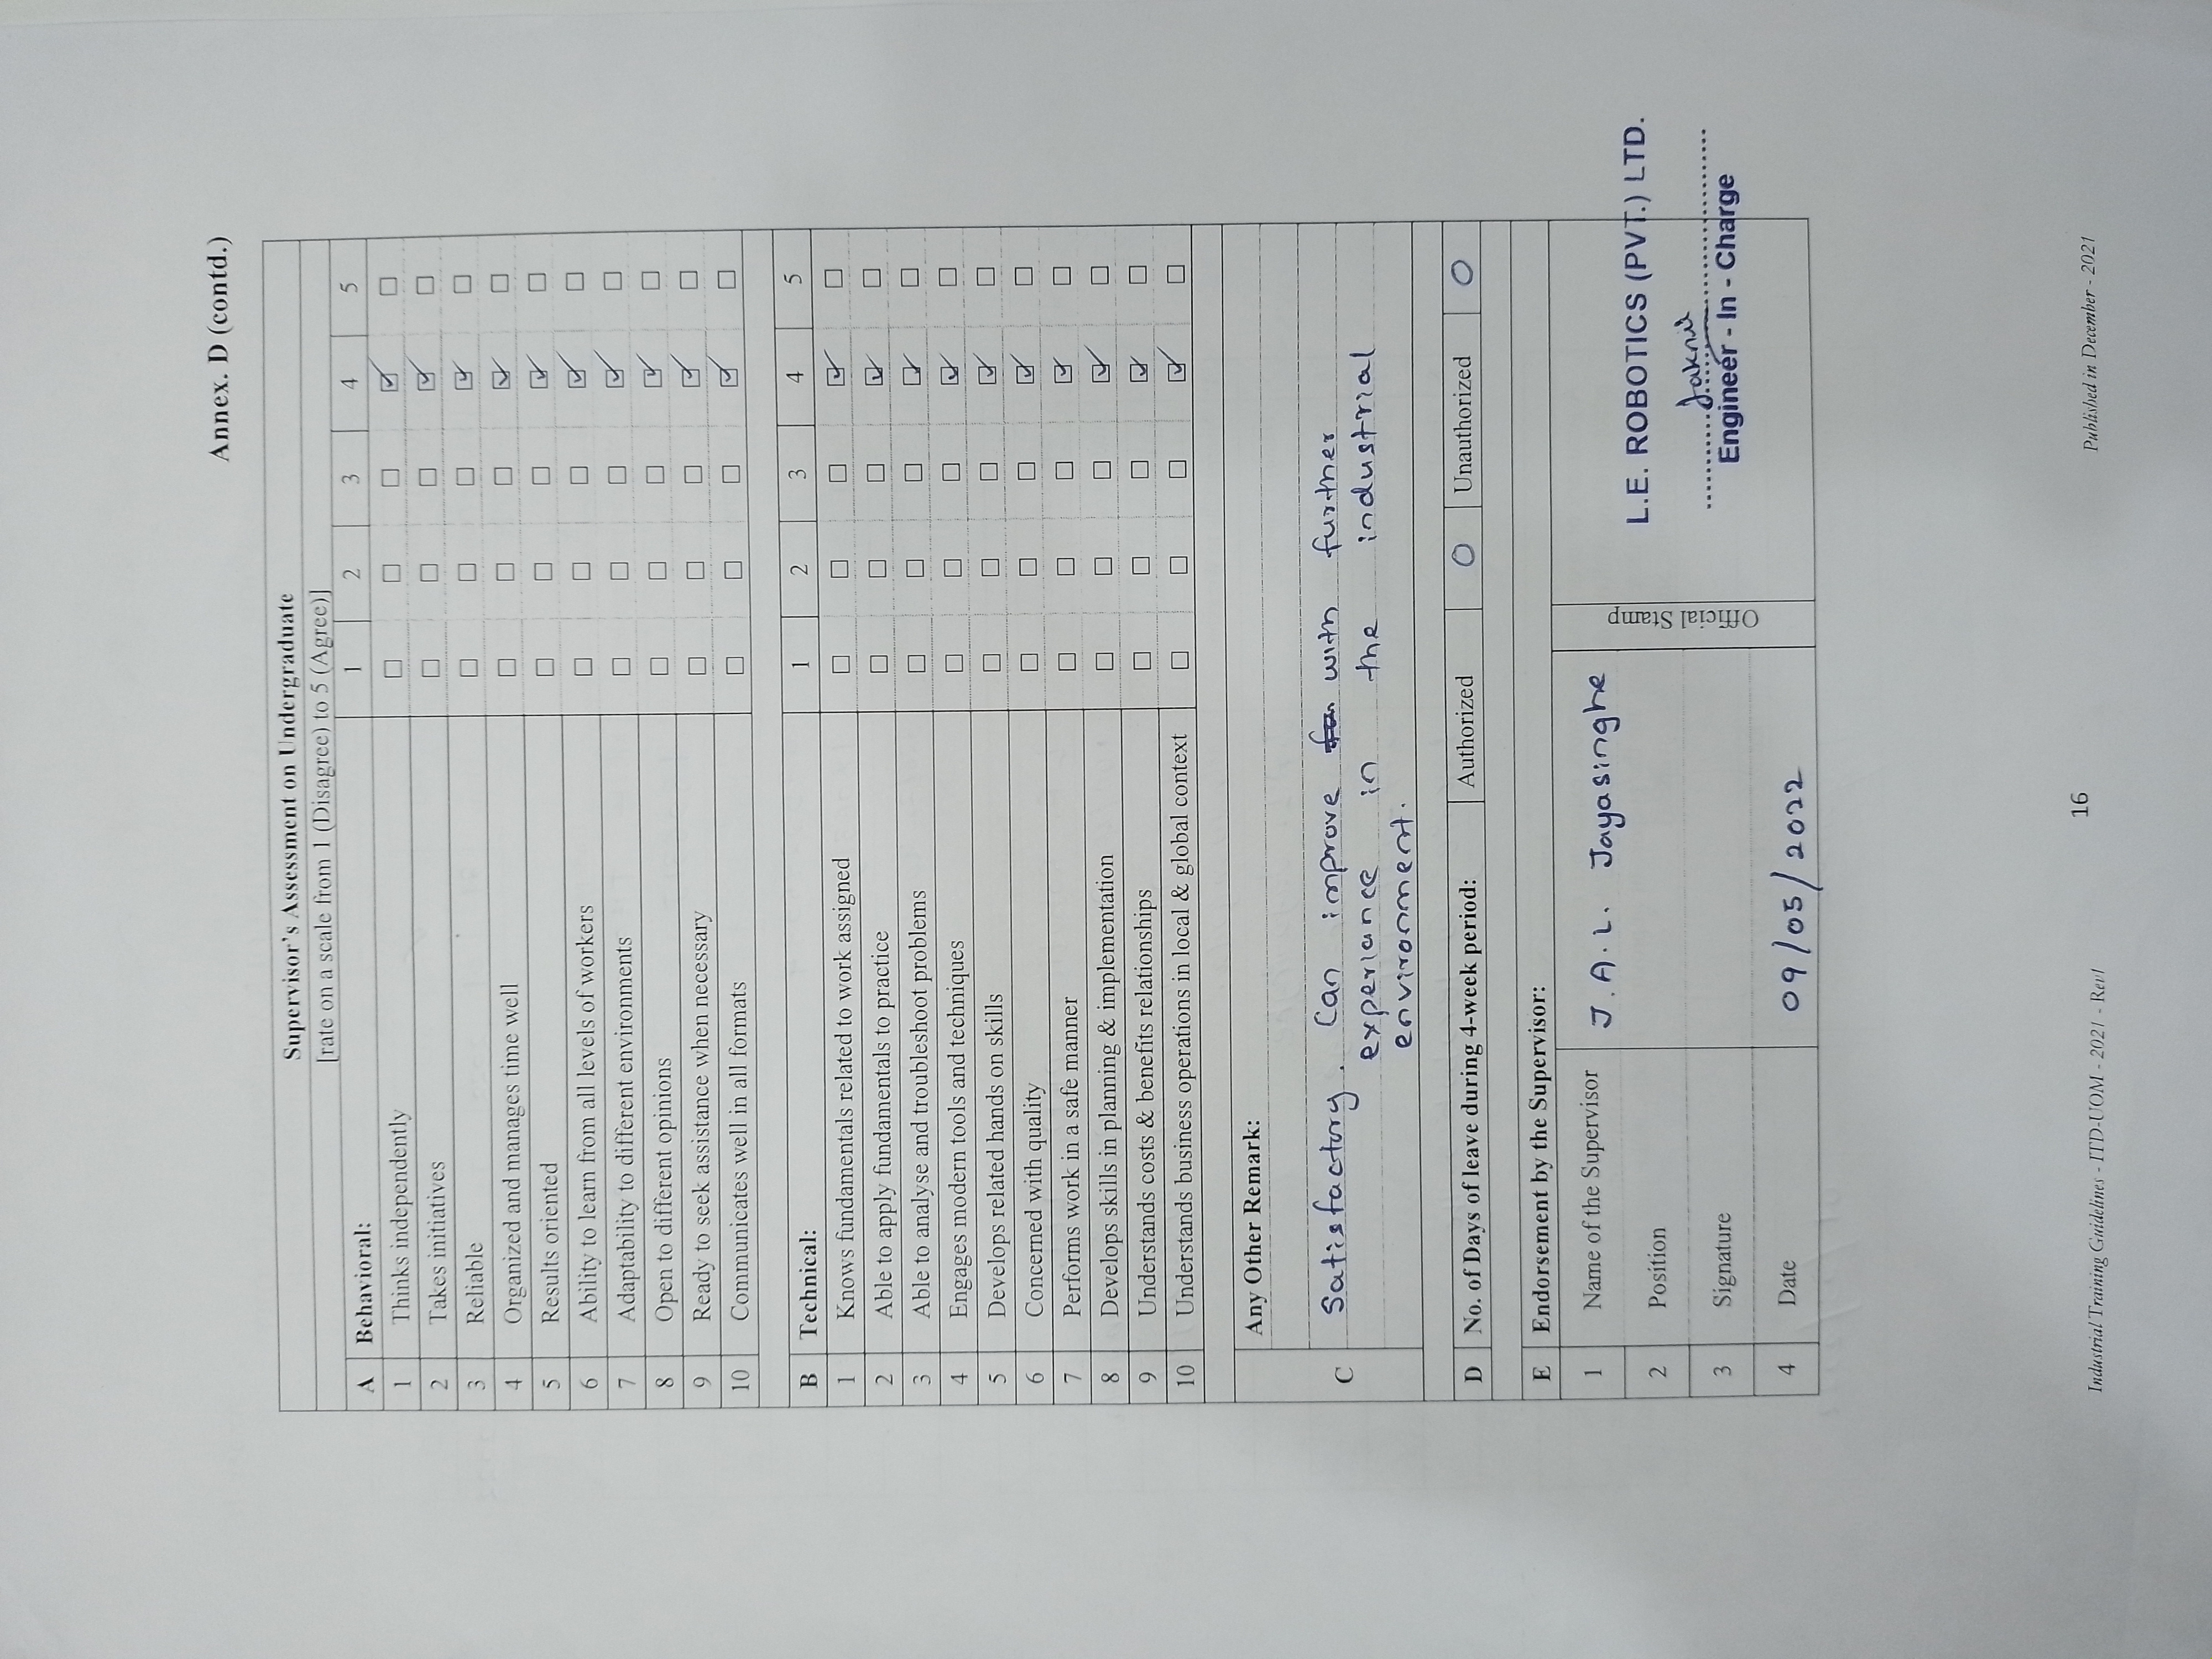 Annex. D (contd.)
Supervisor's Assessment on Undergraduate
[rate on a scale from 1 (Disagree) to 5 (Agree)]
A Behavioral: 1 2 3 4 5
1 Thinks independently
2 Takes initiatives
3 Reliable
4 Organized and manages time well
5 Results oriented
6 Ability to learn from all levels of workers
7 Adaptability to different environments
8 Open to different opinions
9 Ready to seek assistance when necessary
10 Communicates well in all formats
B Technical: 1 2 3 4 5
1 Knows fundamentals related to work assigned
2 Able to apply fundamentals to practice
3 Able to analyse and troubleshoot problems
4 Engages modern tools and techniques
5 Develops related hands on skills
6 Concerned with quality
7 Performs work in a safe manner
8 Develops skills in planning & implementation
9 Understands costs & benefits relationships
10 Understands business operations in local & global context
C Any Other Remark:
Satisfactory. Can improve with further
experiance in the industrial
environment.
D No. of Days of leave during 4-week period: Authorized 0 Unauthorized 0
E Endorsement by the Supervisor:
1 Name of the Supervisor J.A.L. Jayasinghe
2 Position
3 Signature
4 Date 09/05/2022
Official Stamp
L.E. ROBOTICS (PVT.) LTD.
Engineer - In - Charge
16
Industrial Training Guidelines - ITD-UOM - 2021 - Rev1
Published in December - 2021